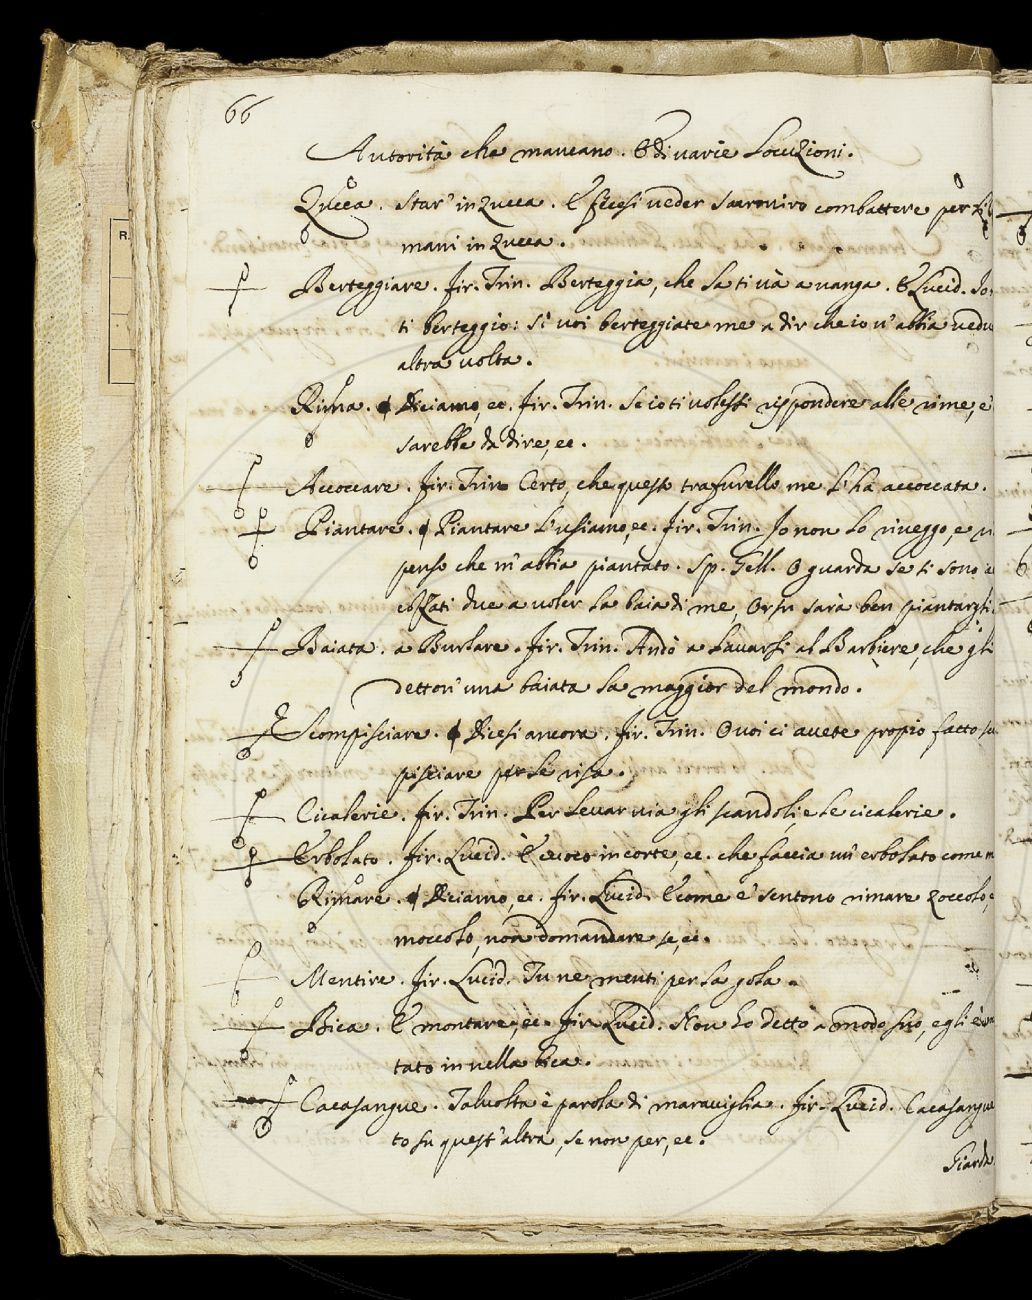 66
Autorità che mancano. E di varie Locuzioni.
Zucca. Star' in zucca. E fecesi veder combattere per
mani in zucca.
Berteggiare. Fir. Trin. Berteggia, che la ti và a vanga. E Lucid. Io
ti berteggio: sì voi berteggiate me a dir che io v'abbia vedu
altra volta.
Rima. Diciamo, ec. Fir. Trin. Se io ti volessi rispondere alle rime, e'
sarebbe da dire, ec.
Accoccare. Fir. Trin. Certo, che questo trafurello me l'ha accoccata.
Piantare. Piantare l'usiamo, ec. Fir. Trin. Io non lo riveggo, e
penso che m'abbia piantato. Sp. Gell. O guarda se ti sono
due a voler la baia di me, Orsù sarà ben piantargli.
Baiata. a Burlare. Fir. Trin. Andò a lavarsi al Barbiere, che gli
detton' una baiata la maggior del mondo.
Scompisciare. Dicesi ancora. Fir. Trin. O voi ci avete propio fatto
pisciare per le risa.
Cicalerie. Fir. Trin. Per levar via gli scandoli, e le cicalerie.
Erbolato. Fir. Lucid. È cuoco in corte, ec. che faccia un' erbolato come
Rimare. Diciamo, ec. Fir. Lucid. E come e' sentono rimare zoccolo, e
moccolo, non domandare se, ec.
Mentire. Fir. Lucid. Tu ne menti per la gola.
Bica. E montare, ec. Fir. Lucid. Non ho detto a modo suo, egli è
tato in nella bica.
Cacasangue. Talvolta è parola di maraviglia. Fir. Lucid. Cacasangue
to su quest'altra, se non per, ec.
Giarda
R.